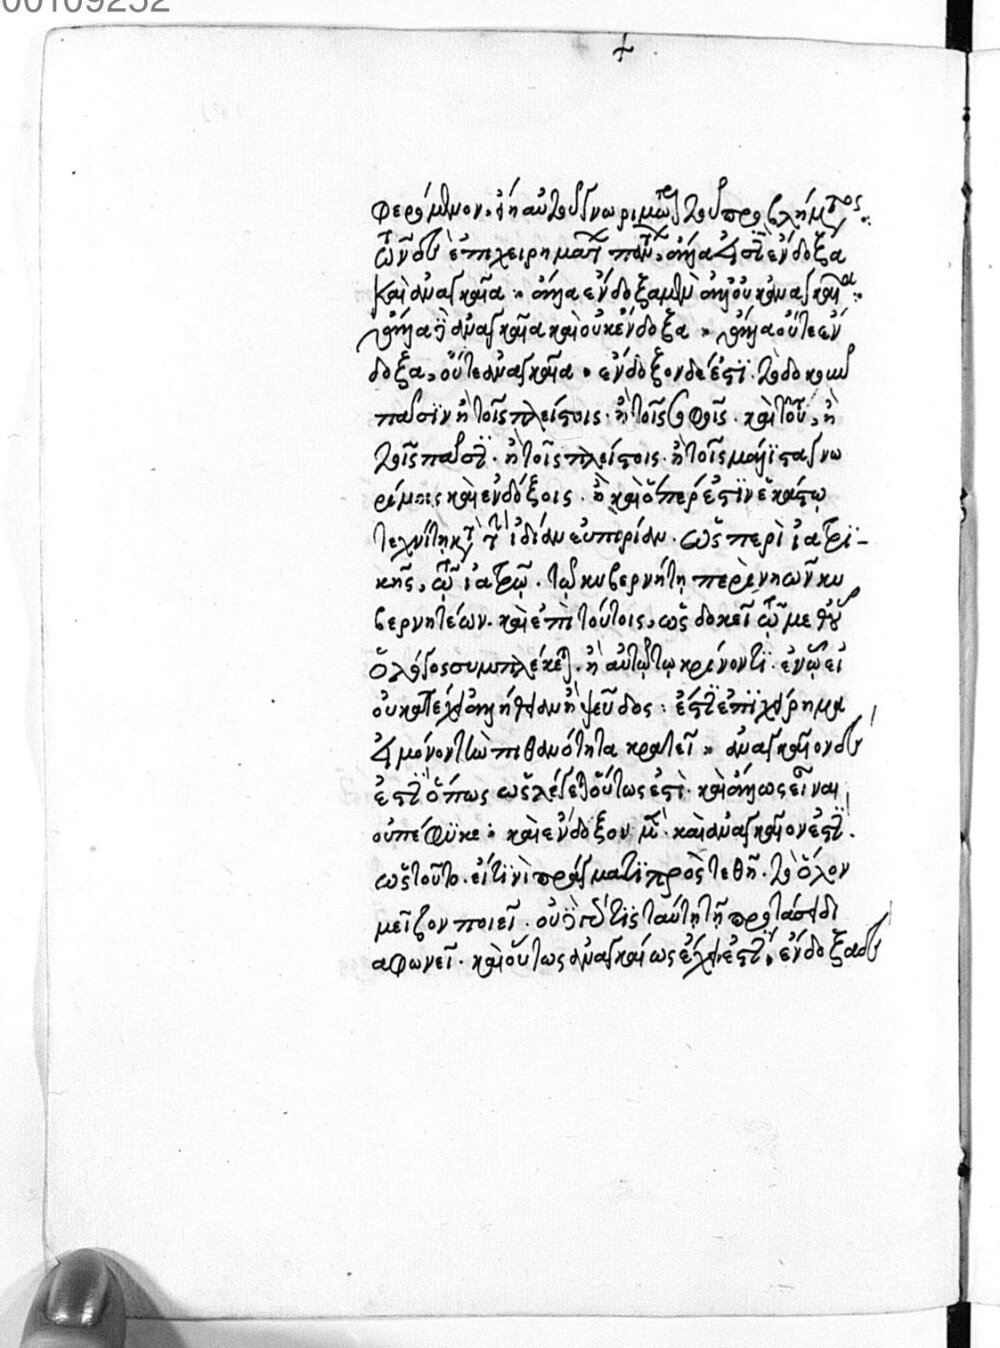 00109252
+
φερόμενον, ἢ αὐτοῦ γνωριμωτέρου τοῦ προβλήματος:
τῶν δὲ ἐπιχειρημάτων πάντων, ἔνια ἐστὶ ἔνδοξα
καὶ ἀναγκαῖα· ἔνια ἔνδοξα μὲν ἀλλ' οὐκ ἀναγκαῖα:
ἔνια δὲ ἀναγκαῖα καὶ οὐκ ἔνδοξα· ἔνια οὔτε ἔν
δοξα, οὔτε ἀναγκαῖα· ἔνδοξον δέ ἐστϊ. τὸ δοκοῦν
πασϊν ἢ τοῖς πλείστοις. ἢ τοῖς σοφοῖς. καὶ τούτων, ἢ
τοῖς πᾶσϊ. ἢ τοῖς πλείστοις. ἢ τοῖς μάλϊστα γνω
ρίμοις καὶ ἐνδόξοις. ἢ καὶ ὅπερ ἐστϊν ἑκάστῳ
τεχνίτῃ κατὰ τὴν ἰδίαν εὐπορίαν. ὡς περὶ ἰατρϊ-
κῆς, τῷ ἰατρῷ. τῷ κυβερνήτῃ περὶ νηῶν κυ
βερνητέων. καὶ ἐπὶ τούτοις, ὡς δοκεῖ τῷ μεθ' οὗ
ὁ λόγος συμπλέκεται. ἢ αὐτῷ τῷ κρίνοντϊ. ἐν ᾧ εἰ
οὐκ ἀντέχει ἀλήθειαν ἢ ψεῦδος: ἔστϊ ἐπϊχείρημα
εἰ μόνον τὴν πιθανότητα κρατεῖ· ἀναγκαῖον δὲ
ἐστϊ ὅπως ὡς λέγεται οὕτως ἐστὶ. καὶ ἄλλως εἶναι
οὐ πέφϋκε· καὶ ἔνδοξον μὲν καὶ ἀναγκαῖον ἐστϊ.
ὡς τοῦτο. εἴ τϊνϊ πράγματϊ προστεθῇ. τὸ ὅλον
μεῖζον ποιεῖ. οὐ γὰρ τϊς ταύτῃ τῇ προτάσει δι
αφωνεῖ. καὶ οὕτως ἀναγκαίως ἔχει ἐστϊ, ἔνδοξα δὲ